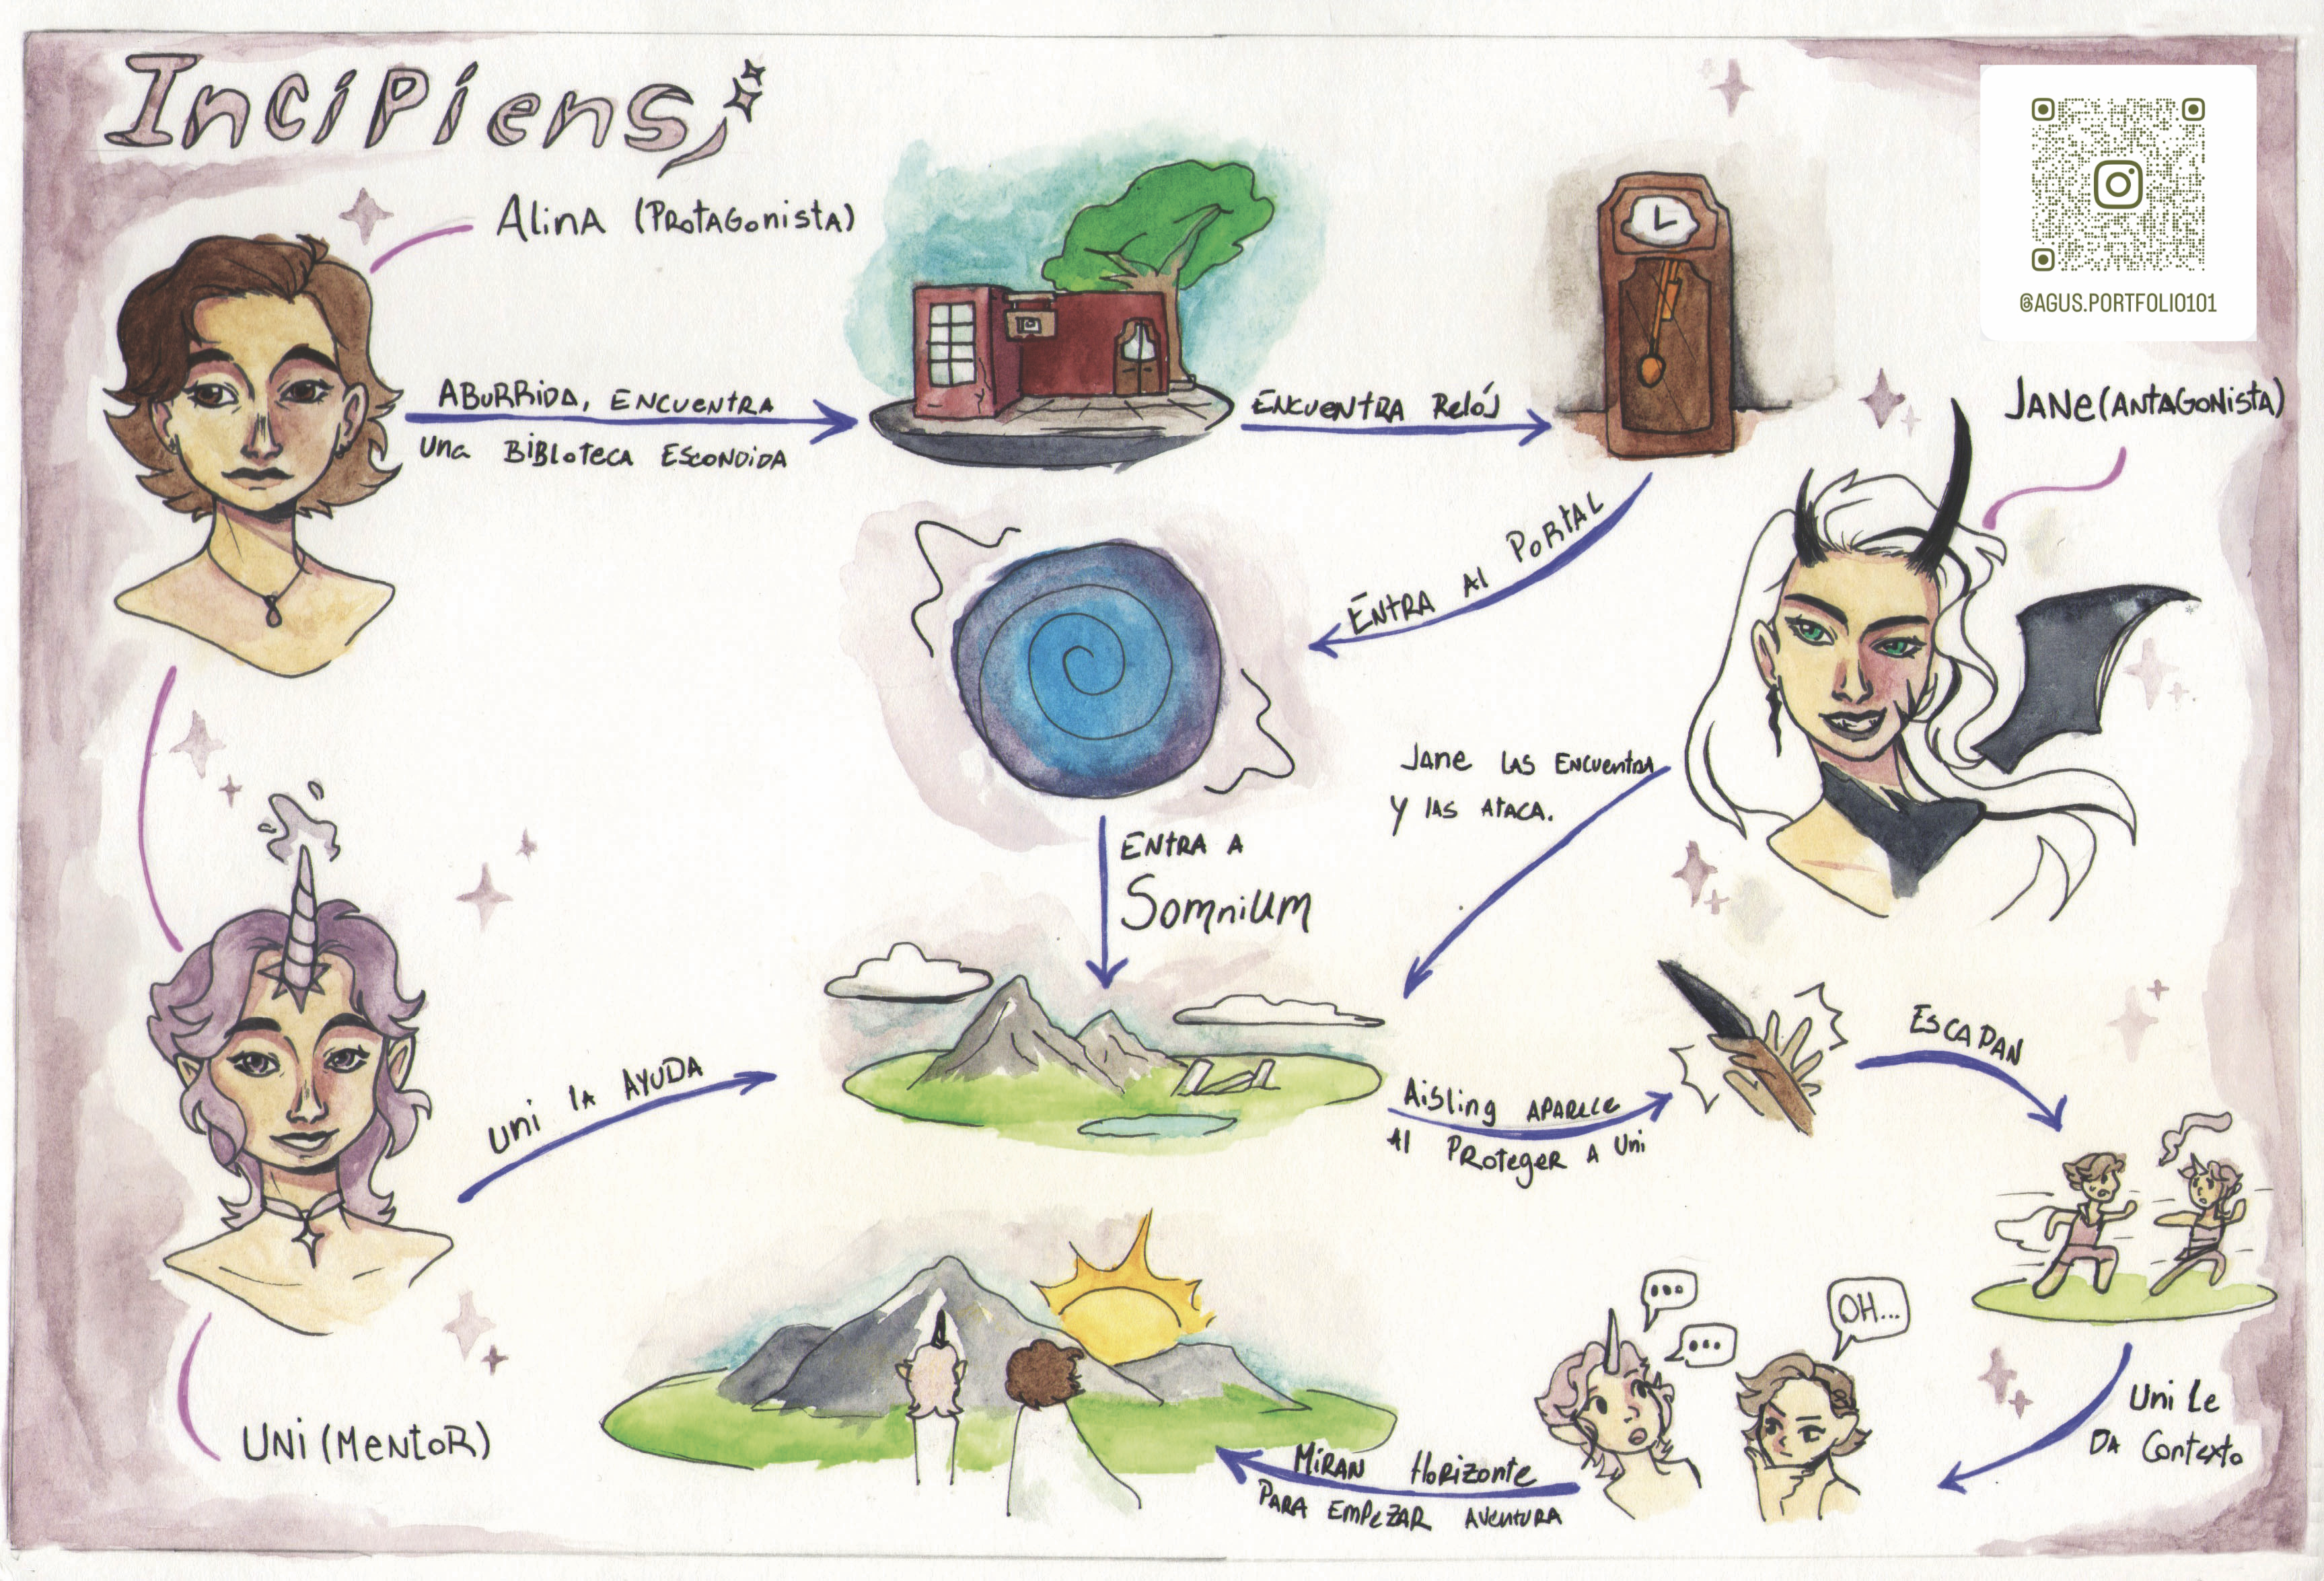 Incipiens
Alina (Protagonista)
@AGUS.PORTFOLIO101
Aburrida, encuentra
una Bibloteca escondida
Encuentra Reloj
Jane (Antagonista)
Entra al Portal
Jane las encuentra
y las ataca.
Entra a
Somnium
Uni la ayuda
Aisling aparece
al proteger a Uni
Escapan
OH...
Uni le
da contexto
Uni (Mentor)
Miran Horizonte
para empezar aventura